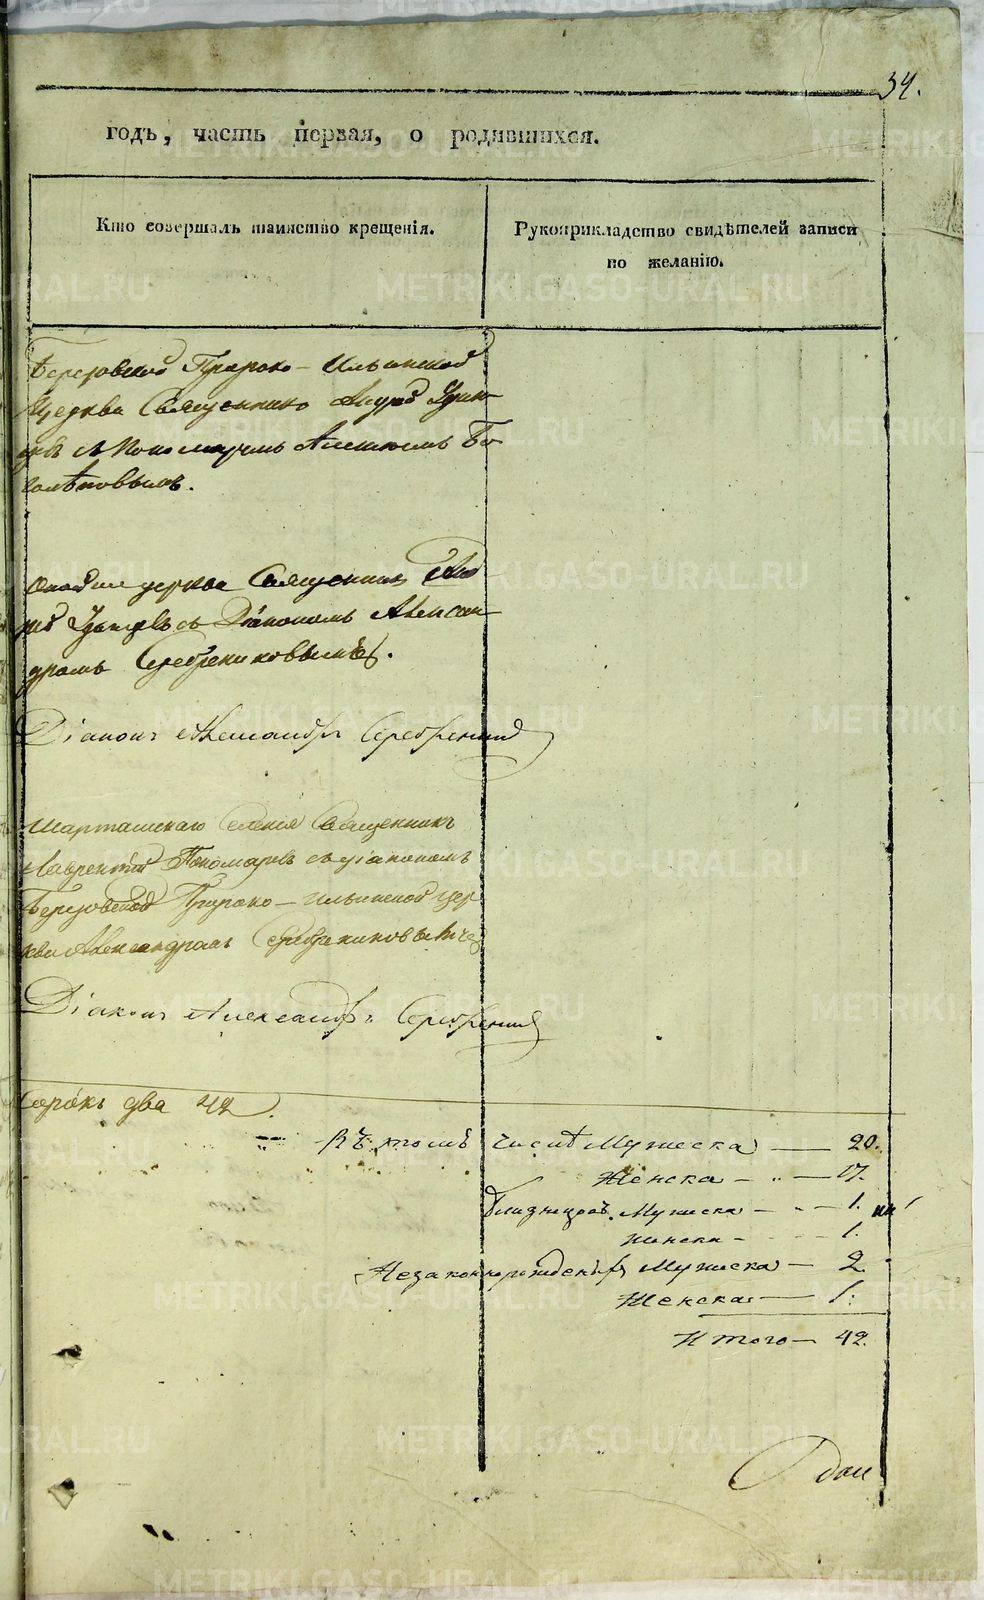 34.
годъ, часть первая, о родившихся.
Кто совершалъ таинство крещенія.
Рукоприкладство свидѣтелей записи
по желанію.
Березовской Пророко-Ильинской
Церкви Священникъ
съ Пономаремъ Алексѣемъ Бо-
голѣповымъ.
церкви Священникъ
съ Діакономъ Алексан-
дромъ Серебрениковымъ.
Діаконъ Александръ Серебренниковъ
Шарташскаго Селенія Священникъ
Лаврентій Пономаревъ съ діакономъ
Березовской Пророко-Ильинской цер-
кви Александромъ Серебрениковымъ
Діаконъ Александръ Серебренниковъ
Сорокъ два 42.
Въ томъ числѣ Мужеска — 20.
Женска — 17.
Близнецовъ. Мужеска — 1.
Женска — 1.
Незаконнорожденныхъ Мужеска — 2
Женска — 1.
Итого — 42.
METRIKI.GASO-URAL.RU